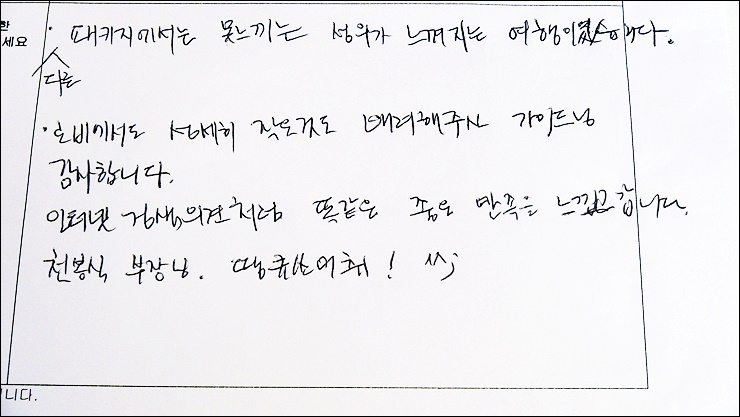 한
세요
· 패키지에서는 못느끼는 성의가 느껴지는 여행이었습니다.
다른
· 로비에서도 상세히 작은것도 배려해주신 가이드님
감사합니다.
인터넷 검색의견처럼 똑같은 좋은 만족을 느끼고 갑니다.
천봉식 부장님. 땡큐쏘머취!
니다.